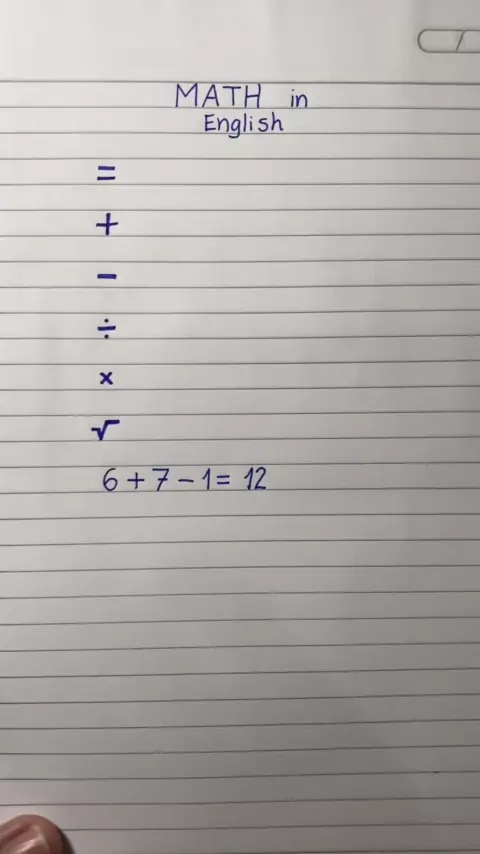 MATH in
English
=
+
-
÷
×
√
6 + 7 - 1 = 12